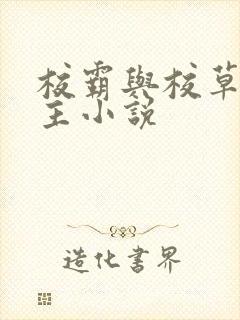 校霸與校草
主小說
造化書界